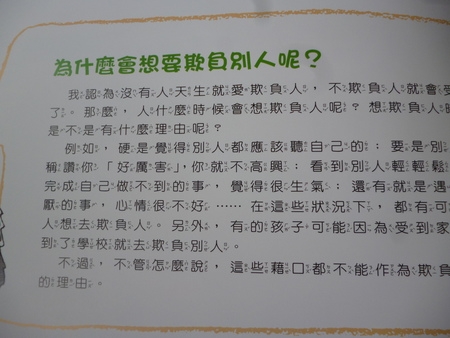 為什麼會想要欺負別人呢？
我認為沒有人天生就愛欺負人，不欺負人就會受
了。那麼，人什麼時候會想欺負人呢？想欺負人時
是不是有什麼理由呢？
例如，硬是覺得別人都應該聽自己的；要是別
稱讚你「好厲害」，你就不高興；看到別人輕輕鬆
完成自己做不到的事，覺得很生氣；還有就是遇
厭的事，心情很不好……在這些狀況下，都有可
人想去欺負人。另外，有的孩子可能因為受到家
到了學校就去欺負別人。
不過，不管怎麼說，這些藉口都不能作為欺負
的理由。